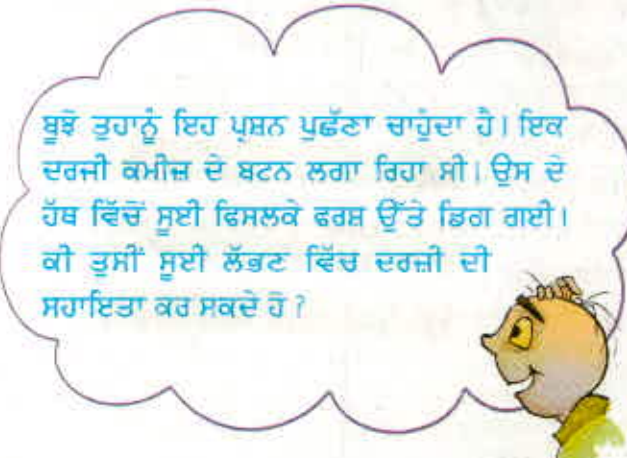 ਬੂਝੋ ਤੁਹਾਨੂੰ ਇਹ ਪ੍ਰਸ਼ਨ ਪੁਛੱਣਾ ਚਾਹੁੰਦਾ ਹੈ। ਇਕ
ਦਰਜੀ ਕਮੀਜ਼ ਦੇ ਬਟਨ ਲਗਾ ਰਿਹਾ ਸੀ। ਉਸ ਦੇ
ਹੱਥ ਵਿੱਚੋਂ ਸੂਈ ਫਿਸਲਕੇ ਫਰਸ਼ ਉੱਤੇ ਡਿਗ ਗਈ।
ਕੀ ਤੁਸੀਂ ਸੂਈ ਲੱਭਣ ਵਿੱਚ ਦਰਜ਼ੀ ਦੀ
ਸਹਾਇਤਾ ਕਰ ਸਕਦੇ ਹੋ ?